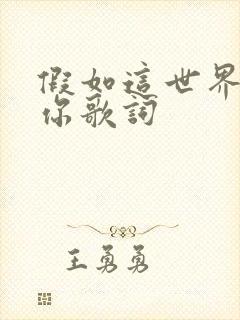 假如這世界
你歌詞
王勇勇